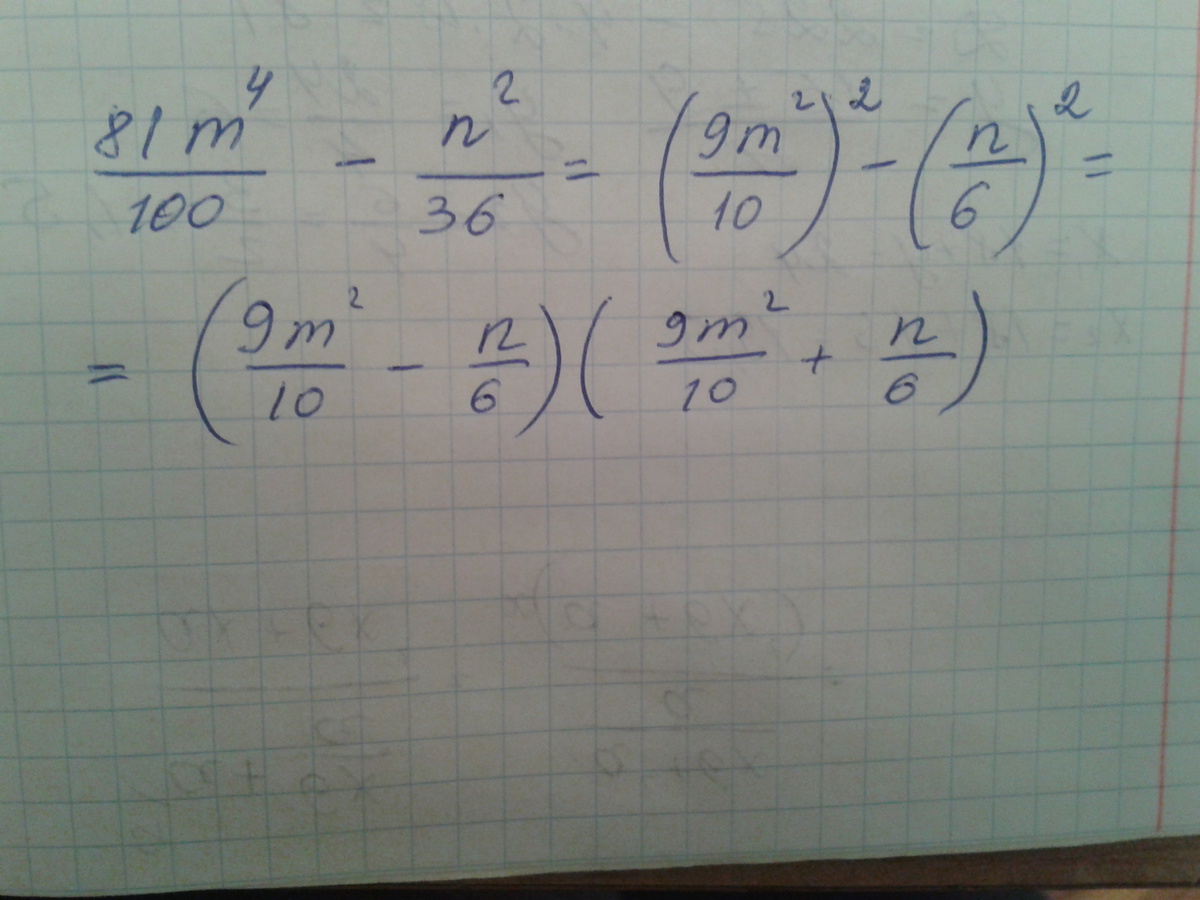 81m⁴/100 − n²/36 = (9m²/10)² − (n/6)² =
= (9m²/10 − n/6)(9m²/10 + n/6)